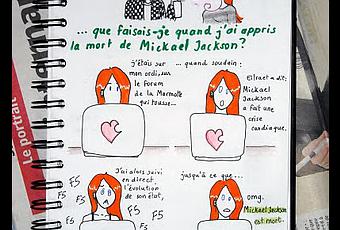 ...que faisais-je quand j'ai appris
la mort de Mickael Jackson?
j'étais sur
mon ordi, sur
le forum
de la Marmotte
qui tousse...
... quand soudain :
Elraet a dit:
Mickael
Jackson
a fait une
crise
cardiaque.
J'ai alors suivi
en direct
l'évolution
de son état,
F5
F5
F5
F5
F5
jusqu'à ce que...
omg.
Mickael Jackson
est mort.
Le portrait